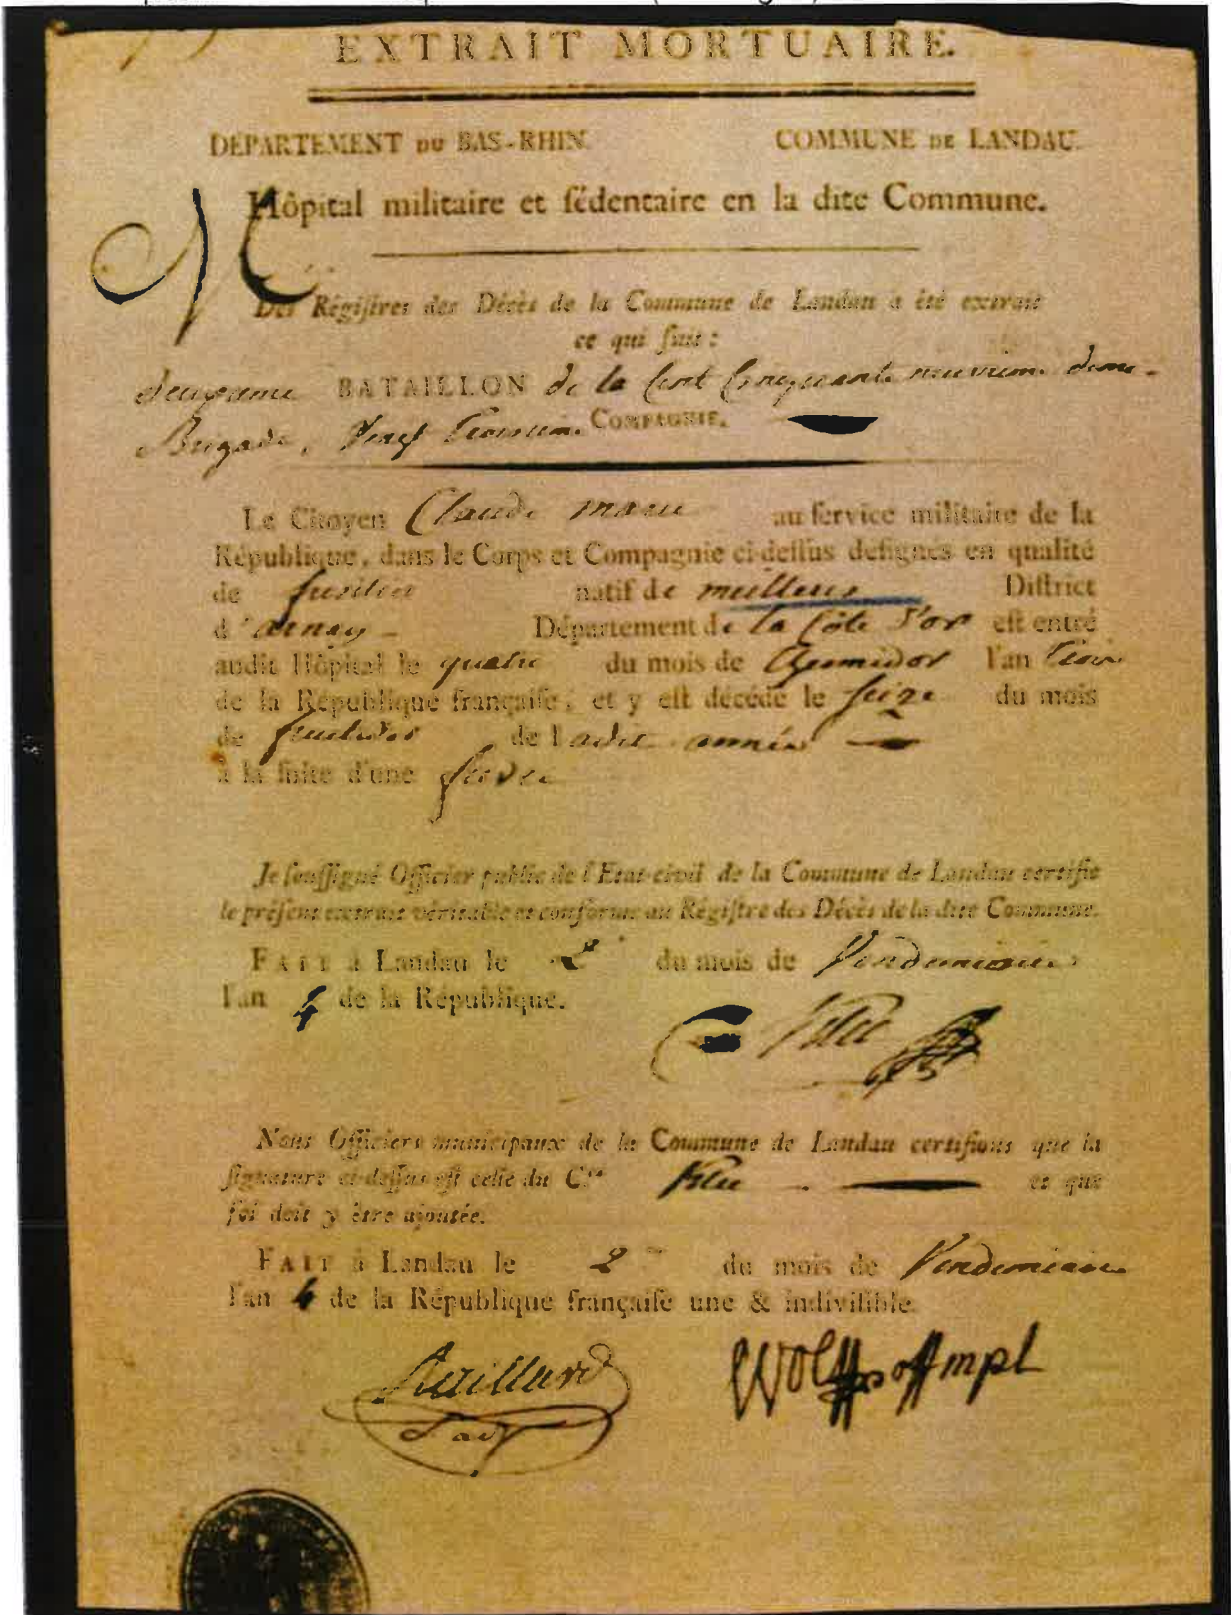 EXTRAIT MORTUAIRE.
DÉPARTEMENT DU BAS-RHIN. COMMUNE DE LANDAU.
Hôpital militaire et ſédentaire en la dite Commune.
Des Régiſtres des Décès de la Commune de Landau a été extrait
ce qui ſuit :
deuxieme BATAILLON de la Cent Cinquante neuvieme demi-
Brigade, Vingt troisieme COMPAGNIE.
Le Citoyen Claude marie au ſervice militaire de la
République, dans le Corps et Compagnie ci-deſſus deſignés en qualité
de fusilier natif de meilleur Diſtrict
d'arnay Département de la Côte d'or eſt entré
audit Hôpital le quatre du mois de thermidor l'an trois
de la République françaiſe ; et y eſt décédé le seize du mois
de fructidor de ladite année
à la ſuite d'une fievre
Je ſouſſigné Officier public de l'Etat-civil de la Commune de Landau certifie
le préſent extrait véritable et conforme au Régiſtre des Décès de la dite Commune.
FAIT à Landau le 2 du mois de Vendemiaire
l'an 4 de la République.
Nous Officiers municipaux de la Commune de Landau certifions que la
ſignature ci-deſſus eſt celle du C.en et que
foi doit y être ajoutée.
FAIT à Landau le 2 du mois de Vendemiaire
l'an 4 de la République françaiſe une & indiviſible.
Wolff off mpl